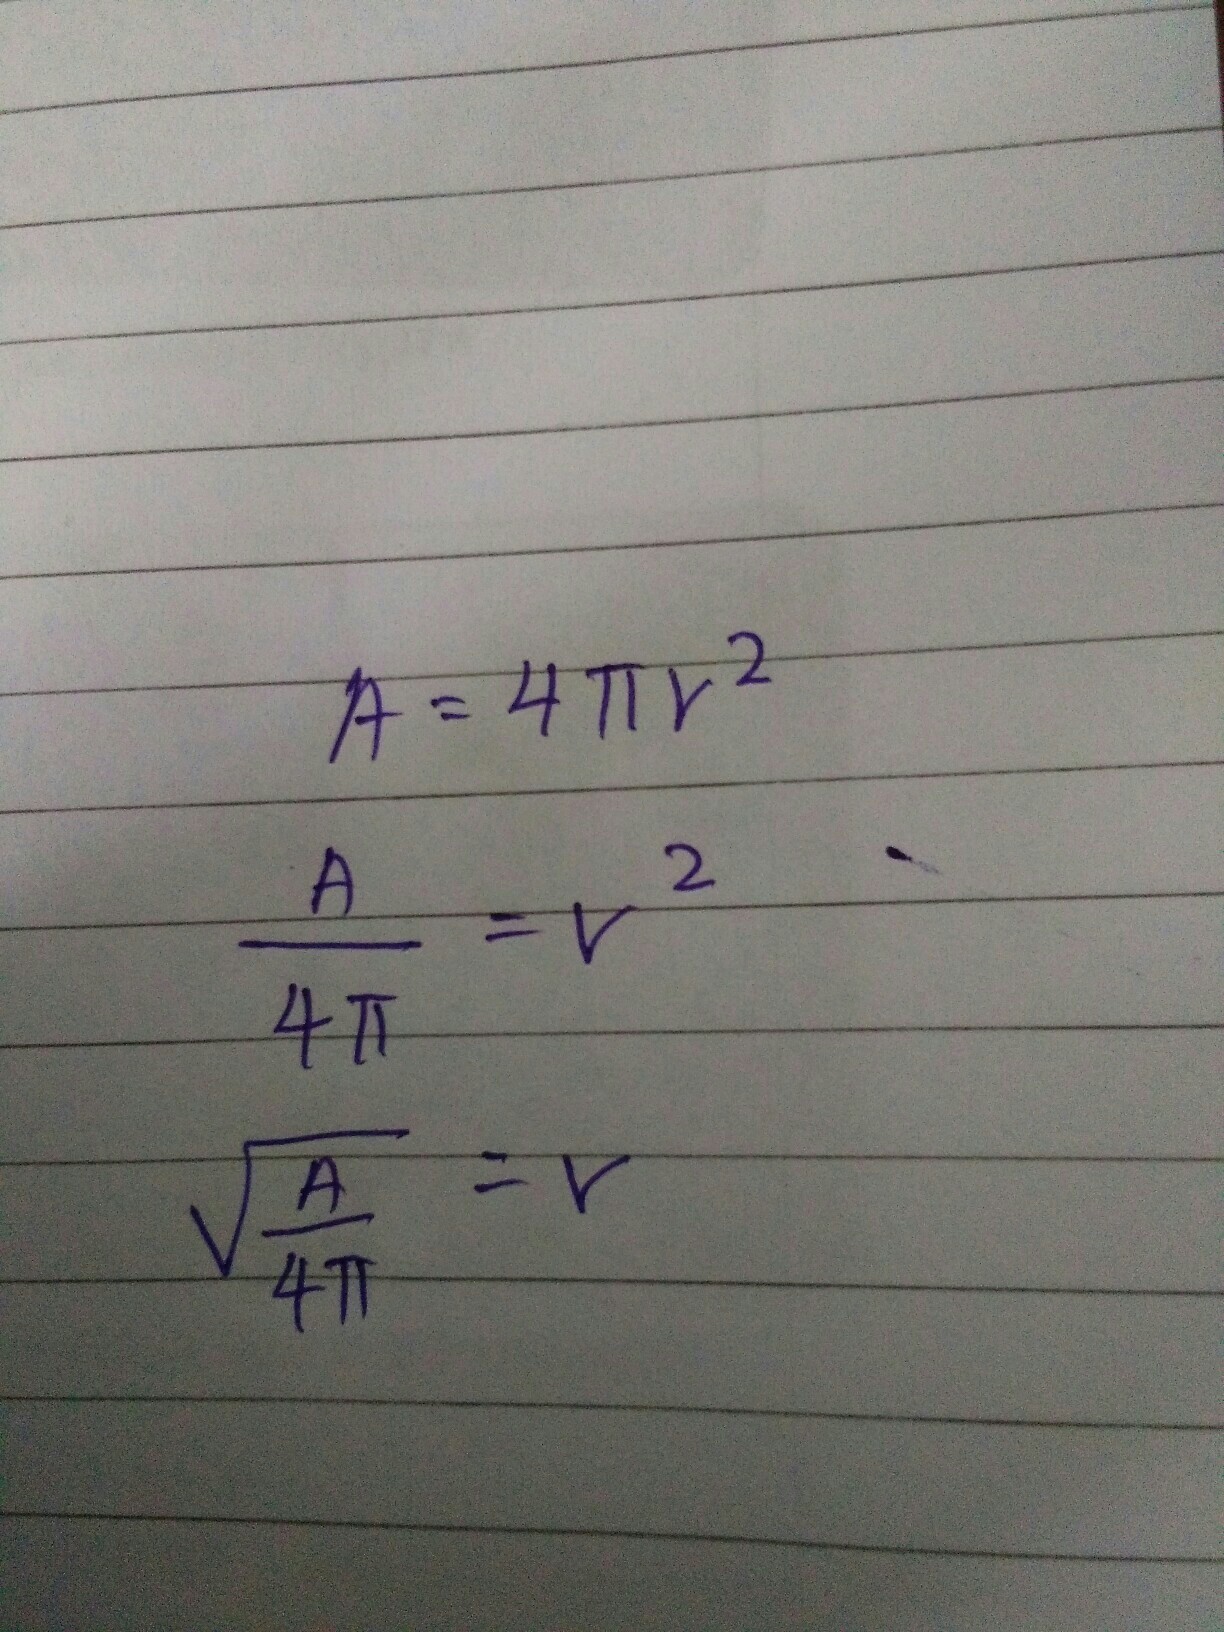 A = 4πr²
A/4π = r²
√(A/4π) = r